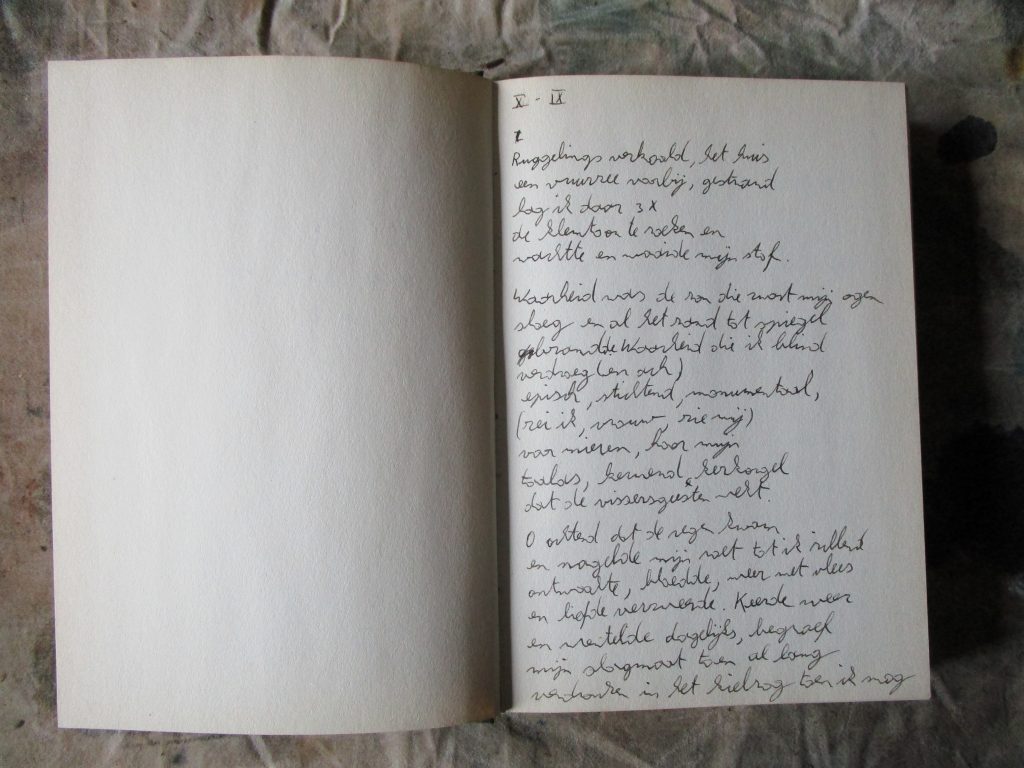 X - IX
1
Ruggelings verkoold, het huis
een vuurzee voorbij, gestrand
lag ik daar 3x
de klemtoon te zoeken en
wachtte en waaide mijn stof.
Waarheid was de zon die zwart mijn ogen
sloeg en al het zand tot spiegel
brandde. Waarheid die ik blind
verdroeg (en ach)
episch, stichtend, monumentaal,
(zei ik, vrouw, zie mij)
voor mieren, hoor mijn
taalas, kermend kerkorgel
dat de vissersgeesten wekt.
O ochtend dat de regen kwam
en nagelde mijn voet tot ik rillend
ontwaakte, bloedde, weer met vlees
en liefde verzweerde. Keerde weer
en wentelde dagelijks, begroef
mijn slaapmaat toen al lang
verdronken in het kielzog toen ik nog